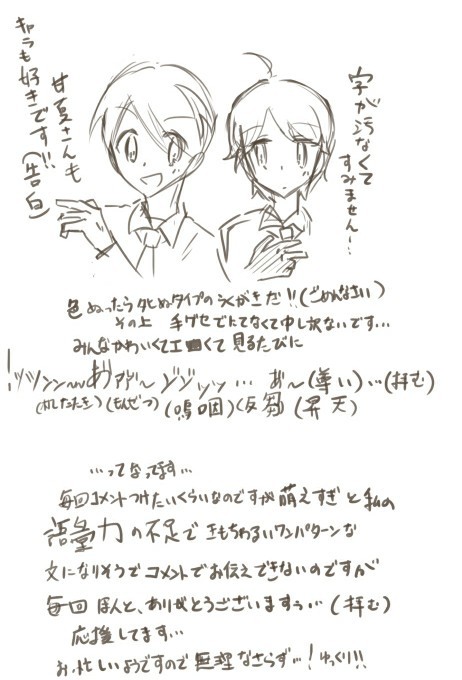 字が汚なくて
すみません…
甘夏さんも
キャラも好きです!!(告白)
色ぬったらタヒぬタイプのらくがきだ!!(ごめんなさい)
その上 手グセでにてなくて申し訳ないです…
みんなかわいくてエ■くて見るたびに
ッツンン〜〜あ゛ア゛ア゛〜ジジィッ… あ〜(尊い)…(拝む)
(もんぜつ)(嗚咽)(反芻)(昇天)
…ってなってます…
毎回コメントつけたいくらいなのですが萌えすぎと私の
語彙力の不足できもちわるいワンパターンな
文になりそうでコメントでお伝えできないのですが
毎回ほんと、ありがとうございますぅ…(拝む)
応援してます…
お忙しいようですので無理なさらず…!ゆっくり!!